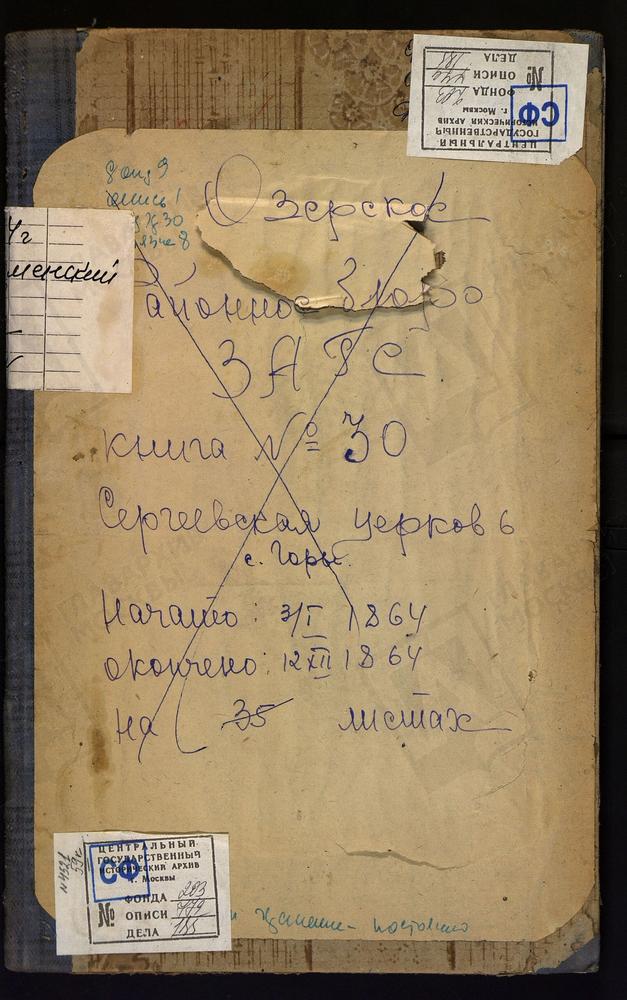 ДЕЛА 185
№ ОПИСИ 779
ФОНДА 203
СФ
г. Москвы
ИСТОРИЧЕСКИЙ АРХИВ
ГОСУДАРСТВЕННЫЙ
ЦЕНТРАЛЬНЫЙ
фонд 9
опись 1
30
8
Озерское
4г
менский
районное бюро
ЗАГС
книга № 30
Сергеевская церковь
с. Горы.
Начато: 3/I 1864
окончено: 12 XII 1864
на 35 листах
N4521
ЦЕНТРАЛЬНЫЙ
ГОСУДАРСТВЕННЫЙ
ИСТОРИЧЕСКИЙ АРХИВ
г. Москвы
СФ
ФОНДА 203
№ ОПИСИ 779
ДЕЛА 185
хранение - постоянно